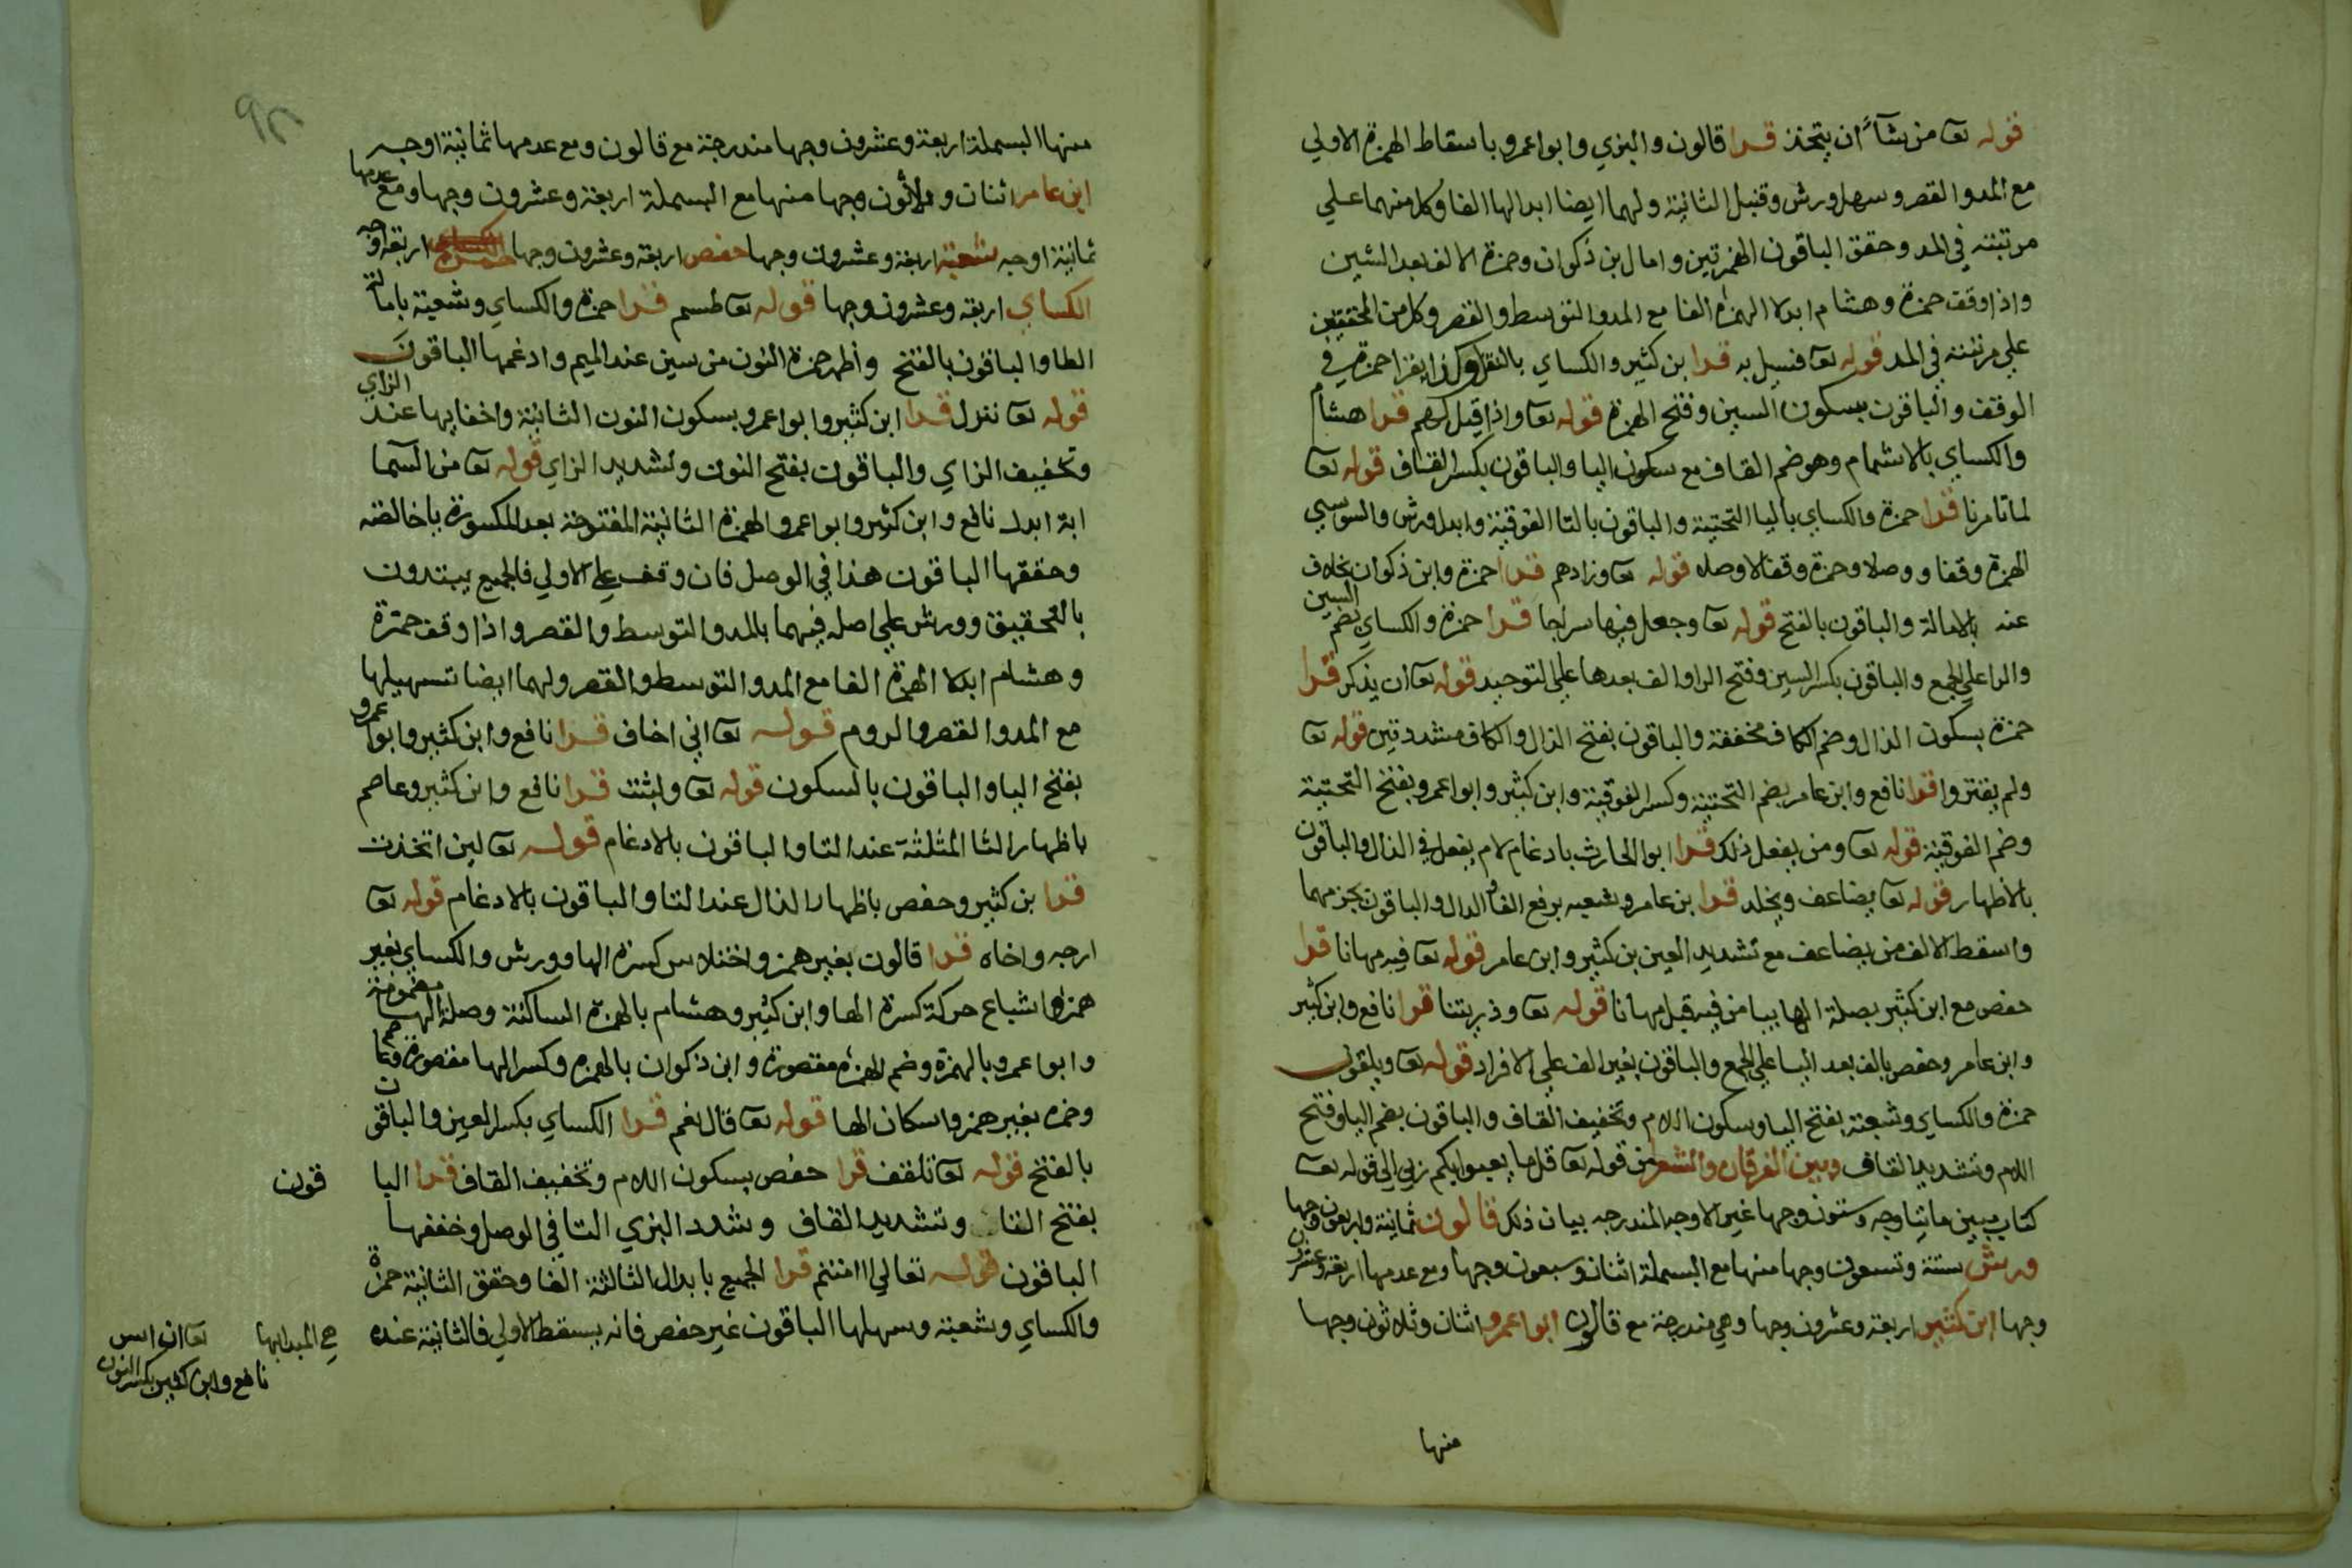 قوله تعا من شآء ان يتخذ قرا قالون والبزي وابوا عمرو باسقاط الهمزة الاولي
مع المد والقصر وسهل ورش وقنبل الثانية ولهما ايضا ابدالها الفا وكل منهما علي
مرتبته في المد وحقق الباقون الهمزتين وامال بن ذكوان وحمزة الالف بعد الشين
واذا وقف حمزة وهشام ابدلا الهمزة الفا مع المد والتوسط والقصر وكل من المحققين
علي مرتبته في المد قوله تعا فسيل به قرا بن كثير والكساي بالنقل وكذا يقرا حمزة في
الوقف والباقون بسكون السين وفتح الهمزة قوله تعا واذا قيل لهم قرا هشام
والكساي بالاشمام وهو ضم القاف مع سكون اليا والباقون بكسر القاف قوله تعا
لما تامرنا قرا حمزة والكساي باليا التحتية والباقون بالتا الفوقية وابدل ورش والسوسي
الهمزة وقفا ووصلا وحمزة وقفا لا وصلا قوله تعا وزادهم قرا حمزة وابن ذكوان بخلاف
عنه بالامالة والباقون بالفتح قوله تعا وجعل فيها سراجا قرا حمزة والكساي بضم السين
والرا علي الجمع والباقون بكسر السين وفتح الرا والف بعدها علي التوحيد قوله تعا ان يذكر قرا
حمزة بسكون الذال وضم الكاف مخففة والباقون بفتح الذال والكاف مشددتين قوله تعا
ولم يفتروا قرا نافع وابن عامر بضم التحتية وكسر الفوقية وابن كثير وابوا عمرو بفتح التحتية
وضم الفوقية قوله تعا ومن يفعل ذلك قرا ابو الحارث بادغام لام يفعل في الذال والباقون
بالاظهار قوله تعا يضاعف ويخلد قرا بن عامر وشعبه برفع الفا والدال والباقون بجزمهما
واسقط الالف من يضاعف مع تشديد العين بن كثير وابن عامر قوله تعا فيه مهانا قرا
حفص مع ابن كثير بصلة الها بيا من فيه قبل مهانا قوله تعا وذريتنا قرا نافع وابن كثير
وابن عامر وحفص بالف بعد اليا علي الجمع والباقون بغير الف علي الافراد قوله تعا ويلقون
حمزة والكساي وشعبة بفتح اليا وسكون اللام وتخفيف القاف والباقون بضم اليا وفتح
اللام وتشديد القاف وبين الفرقان والشعرا من قوله تعا قل ما يعبوا بكم ربي الي قوله تعا
كتاب مبين مائتا وجه وستون وجها غير الاوجه المندرجه بيان ذلك قالون ثمانية واربعون وجها
ورش ستة وتسعون وجها منها مع البسملة اثنان وسبعون وجها ومع عدمها اربعة وعشرون
وجها ابن كثير اربعة وعشرون وجها وهي مندرجة مع قالون ابوا عمرو اثنان وثلاثون وجها
منها
منها البسملة اربعة وعشرون وجها مندرجة مع قالون ومع عدمها ثمانية اوجه
ابن عامر اثنان وثلاثون وجها منها مع البسملة اربعة وعشرون وجها ومع عدمها
ثمانية اوجه شعبة اربعة وعشرون وجها حفص اربعة وعشرون وجها حمزة اربعة اوجه
الكساي اربعة وعشرون وجها قوله تعا طسم قرا حمزة والكساي وشعبة بامالة
الطا والباقون بالفتح واظهر حمزة النون من سين عند الميم وادغمها الباقون
قوله تعا ننزل قرا ابن كثير وابوا عمرو بسكون النون الثانية واخفايها عند الزاي
وتخفيف الزاي والباقون بفتح النون وتشديد الزاي قوله تعا من السما
اية ابدل نافع وابن كثير وابوا عمرو الهمزة الثانية المفتوحة بعد المكسورة ياخالصة
وحققها الباقون هذا في الوصل فان وقف علي الاولي فالجميع يبتدون
بالتحقيق وورش علي اصله فيهما بالمد والتوسط والقصر واذا وقف حمزة
وهشام ابدلا الهمزة الفا مع المد والتوسط والقصر ولهما ايضا تسهيلها
مع المد والقصر والروم قوله تعا اني اخاف قرا نافع وابن كثير وابوا عمرو
بفتح اليا والباقون بالسكون قوله تعا ولبثت قرا نافع وابن كثير وعاصم
باظهار الثا المثلثة عند التا والباقون بالادغام قوله تعا لين اتخذت
قرا بن كثير وحفص باظهار الذال عند التا والباقون بالادغام قوله تعا
ارجه واخاه قرا قالون بغير همز واختلاس كسرة الها وورش والكساي بغير
همز واشباع حركة كسرة الها وابن كثير وهشام بالهمزة الساكنة وصلة الها مضمومة
وابوا عمرو بالهمزة وضم الهمزة مقصورة وابن ذكوان بالهمزة وكسر الها مقصورة وعاصم
وحمزه بغير همز واسكان الها قوله تعا قال نعم قرا الكساي بكسر العين والباقون
بالفتح قوله تعا تلقف قرا حفص بسكون اللام وتخفيف القاف قرا البا قون
بفتح الفا وتشديد القاف وشدد البزي التا في الوصل وخففها
الباقون قوله تعالي اامنتم قرا الجميع بابدال الثالثة الفا وحقق الثانية حمزة
والكساي وشعبة وسهلها الباقون غير حفص فانه يسقط الاولي فالثانية عنده
هي المبدابها تعا ان اسر
نافع وابن كثير بكسر النون